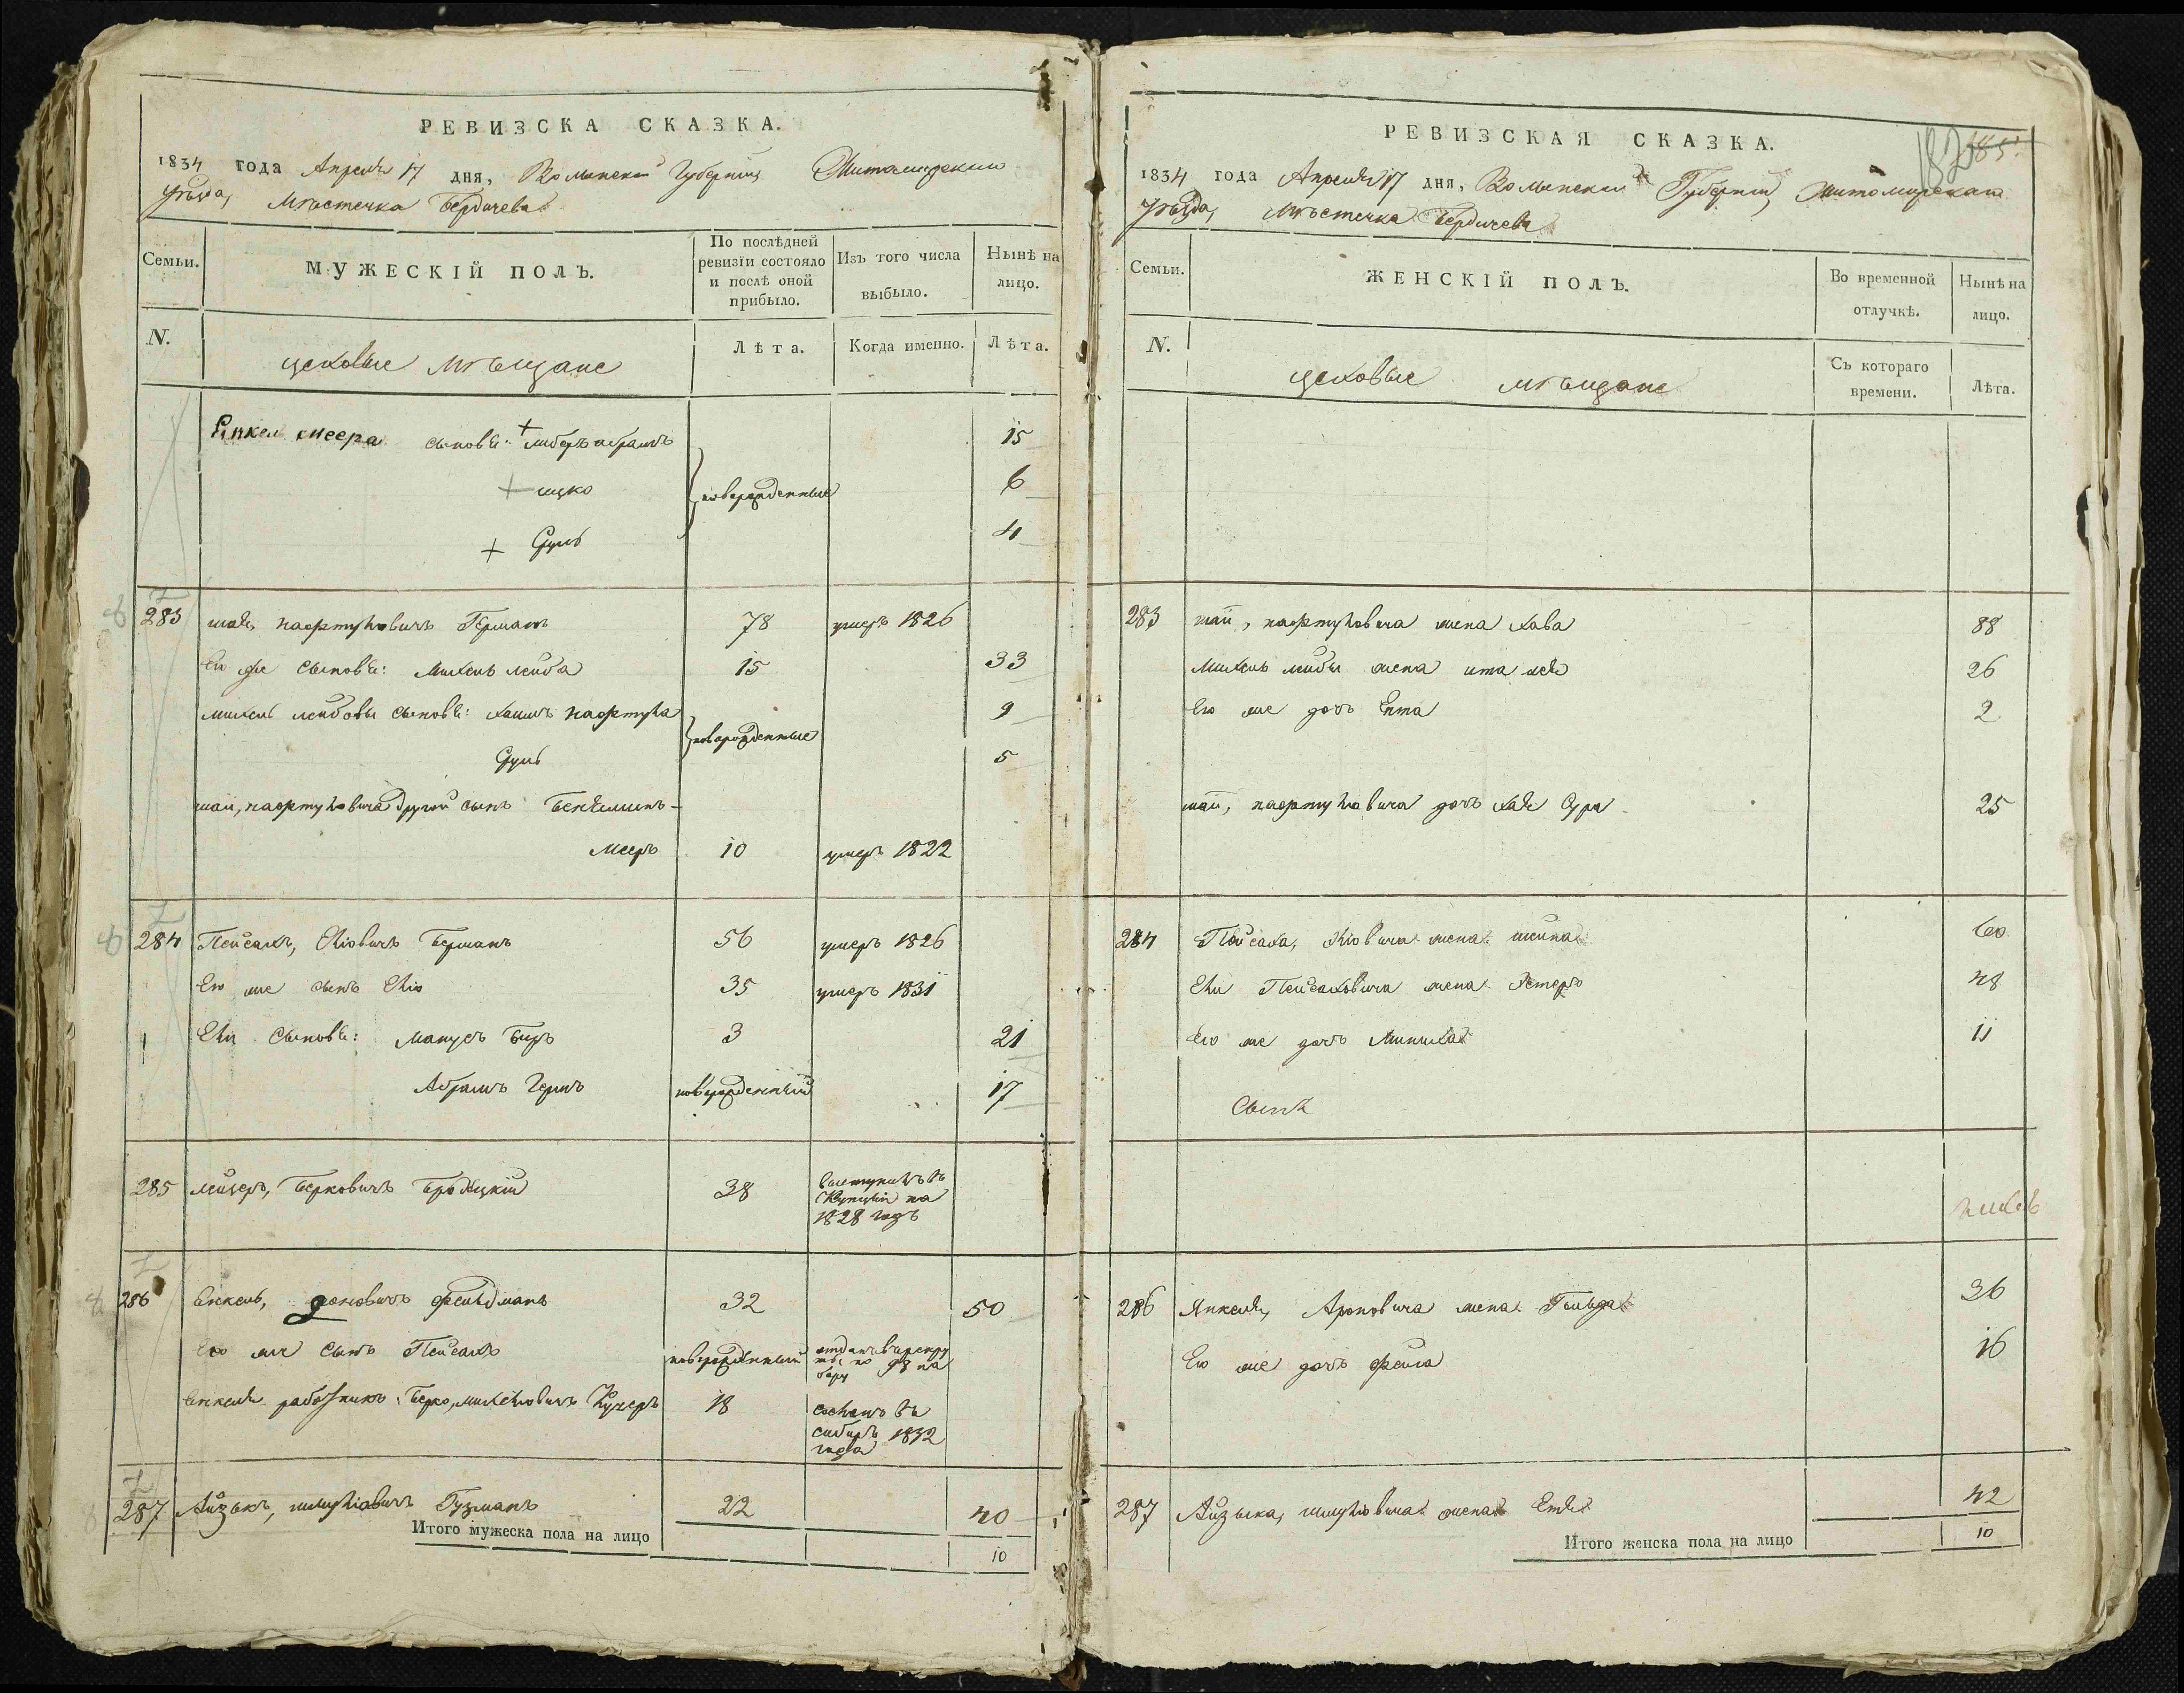 РЕВИЗСКА СКАЗКА.
1834 года Апреля 17 дня, Волынской Губерніи Житомирскаго
уѣзда, Мѣстечка Бердичева
Семьи.
МУЖЕСКІЙ ПОЛЪ.
По послѣдней ревизіи состояло и послѣ оной прибыло.
Изъ того числа выбыло.
Нынѣ на лицо.
N.
цеховые мѣщане
Лѣта.
Когда именно.
Лѣта.
Янкель меера сыновья: + либеръ абрамъ 15
+ ицко новорожденные 6
+ Сруль 4
283 шая, нафтуловичъ Германъ 78 умеръ 1826
Его же сыновья: Михель лейба 15 33
михель лейбовы сыновья: хаимъ нафтула 9
новорожденные
Сруль 5
шаи, нафтуловича другой сынъ Бенъяминъ-
Мееръ 10 умеръ 1822
284 Пейсахъ, Еліовичъ Берманъ 56 умеръ 1826
Его же сынъ Еліо 35 умеръ 1831
Ели сыновья: Манусъ Беръ 3 21
Абрамъ Гершъ новорожденный 17
285 лейзеръ, Берковичъ Бродцкій 38 выступилъ въ
Купцы на
1828 годъ
286 Янкель, роновичъ Фельдманъ 32 50
Его же сынъ Пейсахъ новорожденный отданъ в рекру
ты по
Янкеля работникъ Берко, михелювичъ Кучеръ 18 сосланъ въ
сибирь 1832
года
287 Айзыкъ, шмуліовичъ Гузманъ 22 40
Итого мужеска пола на лицо 10
РЕВИЗСКАЯ СКАЗКА.
182 185.
1834 года Апреля 17 дня, Волынской Губерніи, Житомирскаго
уѣзда, Мѣстечка Бердичева
Семьи.
ЖЕНСКІЙ ПОЛЪ.
Во временной отлучкѣ.
Нынѣ на лицо.
N.
цеховые мѣщане
Съ котораго времени.
Лѣта.
283 шаи, нафтуловича жена хава 88
Михель лейбы жена ита лея 26
Его же дочь Ента 2
шаи, нафтуловича дочь хая Сура 25
284 Пейсаха, Еліовича жена шейна 60
Ели Пейсаховича жена Эстеръ 48
Его же дочь 11
286 Янкеля, Ароновича жена Гольда 36
Его же дочь фейга 16
287 Айзыка, шмуліовича жена Етля 42
Итого женска пола на лицо 10